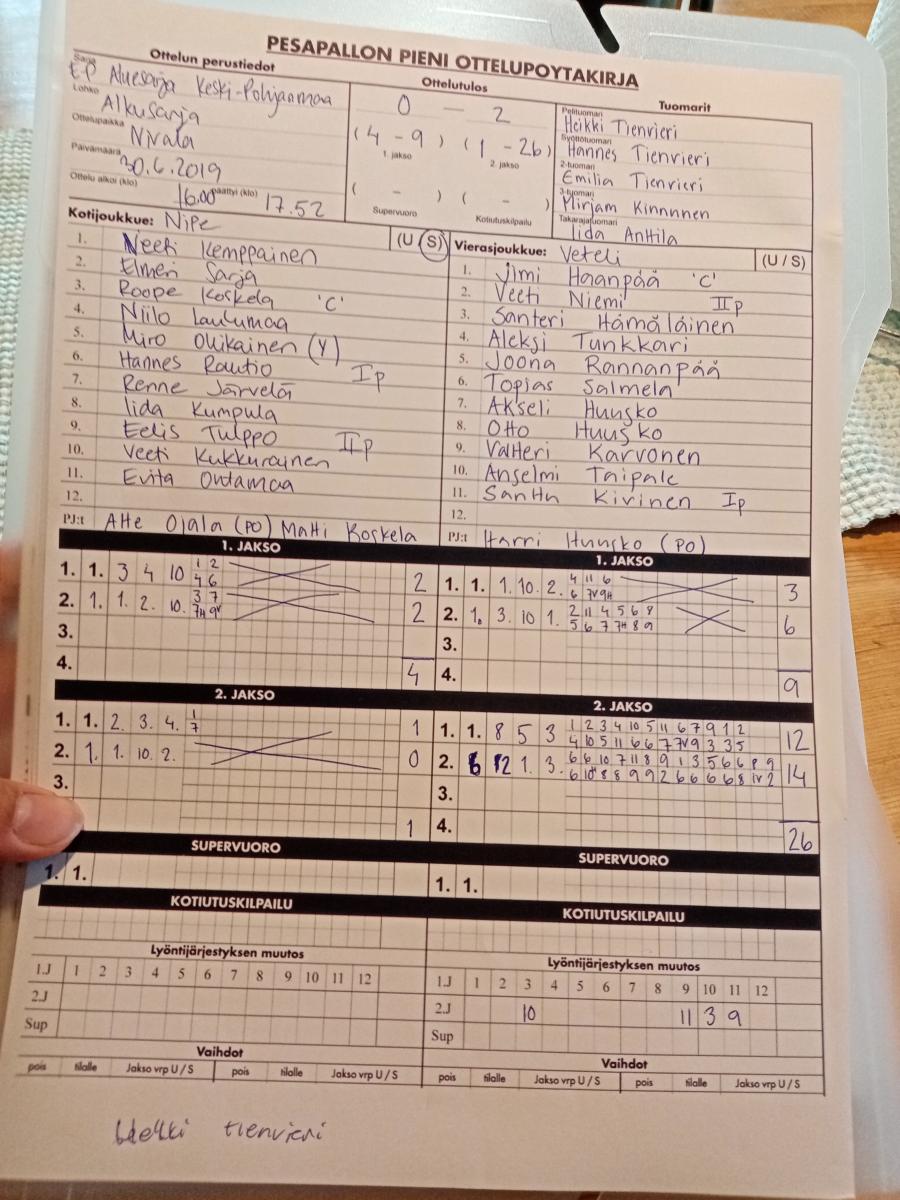 PESAPALLON PIENI OTTELUPOYTAKIRJA
Ottelun perustiedot
Sarja
EP Aluesarja Keski-Pohjanmaa
Lohko
Alkusarja
Ottelupaikka
Nivala
Päivämäärä
30.6.2019
Ottelu alkoi (klo) 16.00 päättyi (klo) 17.52
Ottelutulos
0 — 2
( 4 - 9 ) ( 1 - 26 )
1. jakso 2. jakso
( - ) ( - )
Supervuoro Kotiutuskilpailu
Tuomarit
Pelituomari
Heikki Tienvieri
Syöttötuomari
Hannes Tienvieri
2-tuomari
Emilia Tienvieri
3-tuomari
Mirjam Kinnunen
Takarajatuomari
Iida Anttila
Kotijoukkue: Nipe (U / S)
1. Neeti Kemppainen
2. Elmeri Sarja
3. Roope Koskela 'C'
4. Niilo Laulumaa
5. Miro Ohikainen (Y)
6. Hannes Rautio Ip
7. Renne Järvelä
8. Iida Kumpula
9. Eelis Tulppo IIp
10. Veeti Kukkurainen
11. Evita Ontamaa
12.
PJ:t Atte Ojala (PO) Matti Koskela
Vierasjoukkue: Veteli (U / S)
1. Jimi Haanpää 'C'
2. Veeti Niemi IIp
3. Santeri Hämäläinen
4. Aleksi Tunkkari
5. Joona Rannanpää
6. Topias Salmela
7. Akseli Huusko
8. Otto Huusko
9. Valtteri Karvonen
10. Anselmi Taipale
11. Santtu Kivinen Ip
12.
PJ:t Harri Huusko (PO)
1. JAKSO
1. 1. 3 4 10 1 2 2
4 6
2. 1. 1. 2. 10. 3 7 2
7H 9V
3.
4. 4
1. JAKSO
1. 1. 1. 10. 2. 4 11 6 3
6 7V 9H
2. 1. 3. 10 1. 2 11 4 5 6 8 6
5 6 7 7H 8 9
3.
4. 9
2. JAKSO
1. 1. 2. 3. 4. 1 1
7
2. 1. 1. 10. 2. 0
3.
1
2. JAKSO
1. 1. 8 5 3 1 2 3 4 10 5 11 6 7 9 1 2 12
4 10 5 11 6 6 7 7V 9 3 3 5
2. 6 12 1. 3. 6 6 10 7 11 8 9 1 3 5 6 6 8 9 14
6 10H 8 8 9 9 2 6 6 6 6 8 1V 2
3.
4. 26
SUPERVUORO
1. 1.
SUPERVUORO
1. 1.
KOTIUTUSKILPAILU
KOTIUTUSKILPAILU
Lyöntijärjestyksen muutos
1.J 1 2 3 4 5 6 7 8 9 10 11 12
2.J
Sup
Lyöntijärjestyksen muutos
1.J 1 2 3 4 5 6 7 8 9 10 11 12
2.J 10 11 3 9
Sup
Vaihdot
pois tilalle Jakso vrp U / S pois tilalle Jakso vrp U / S
Vaihdot
pois tilalle Jakso vrp U / S pois tilalle Jakso vrp U / S
Heikki Tienvieri